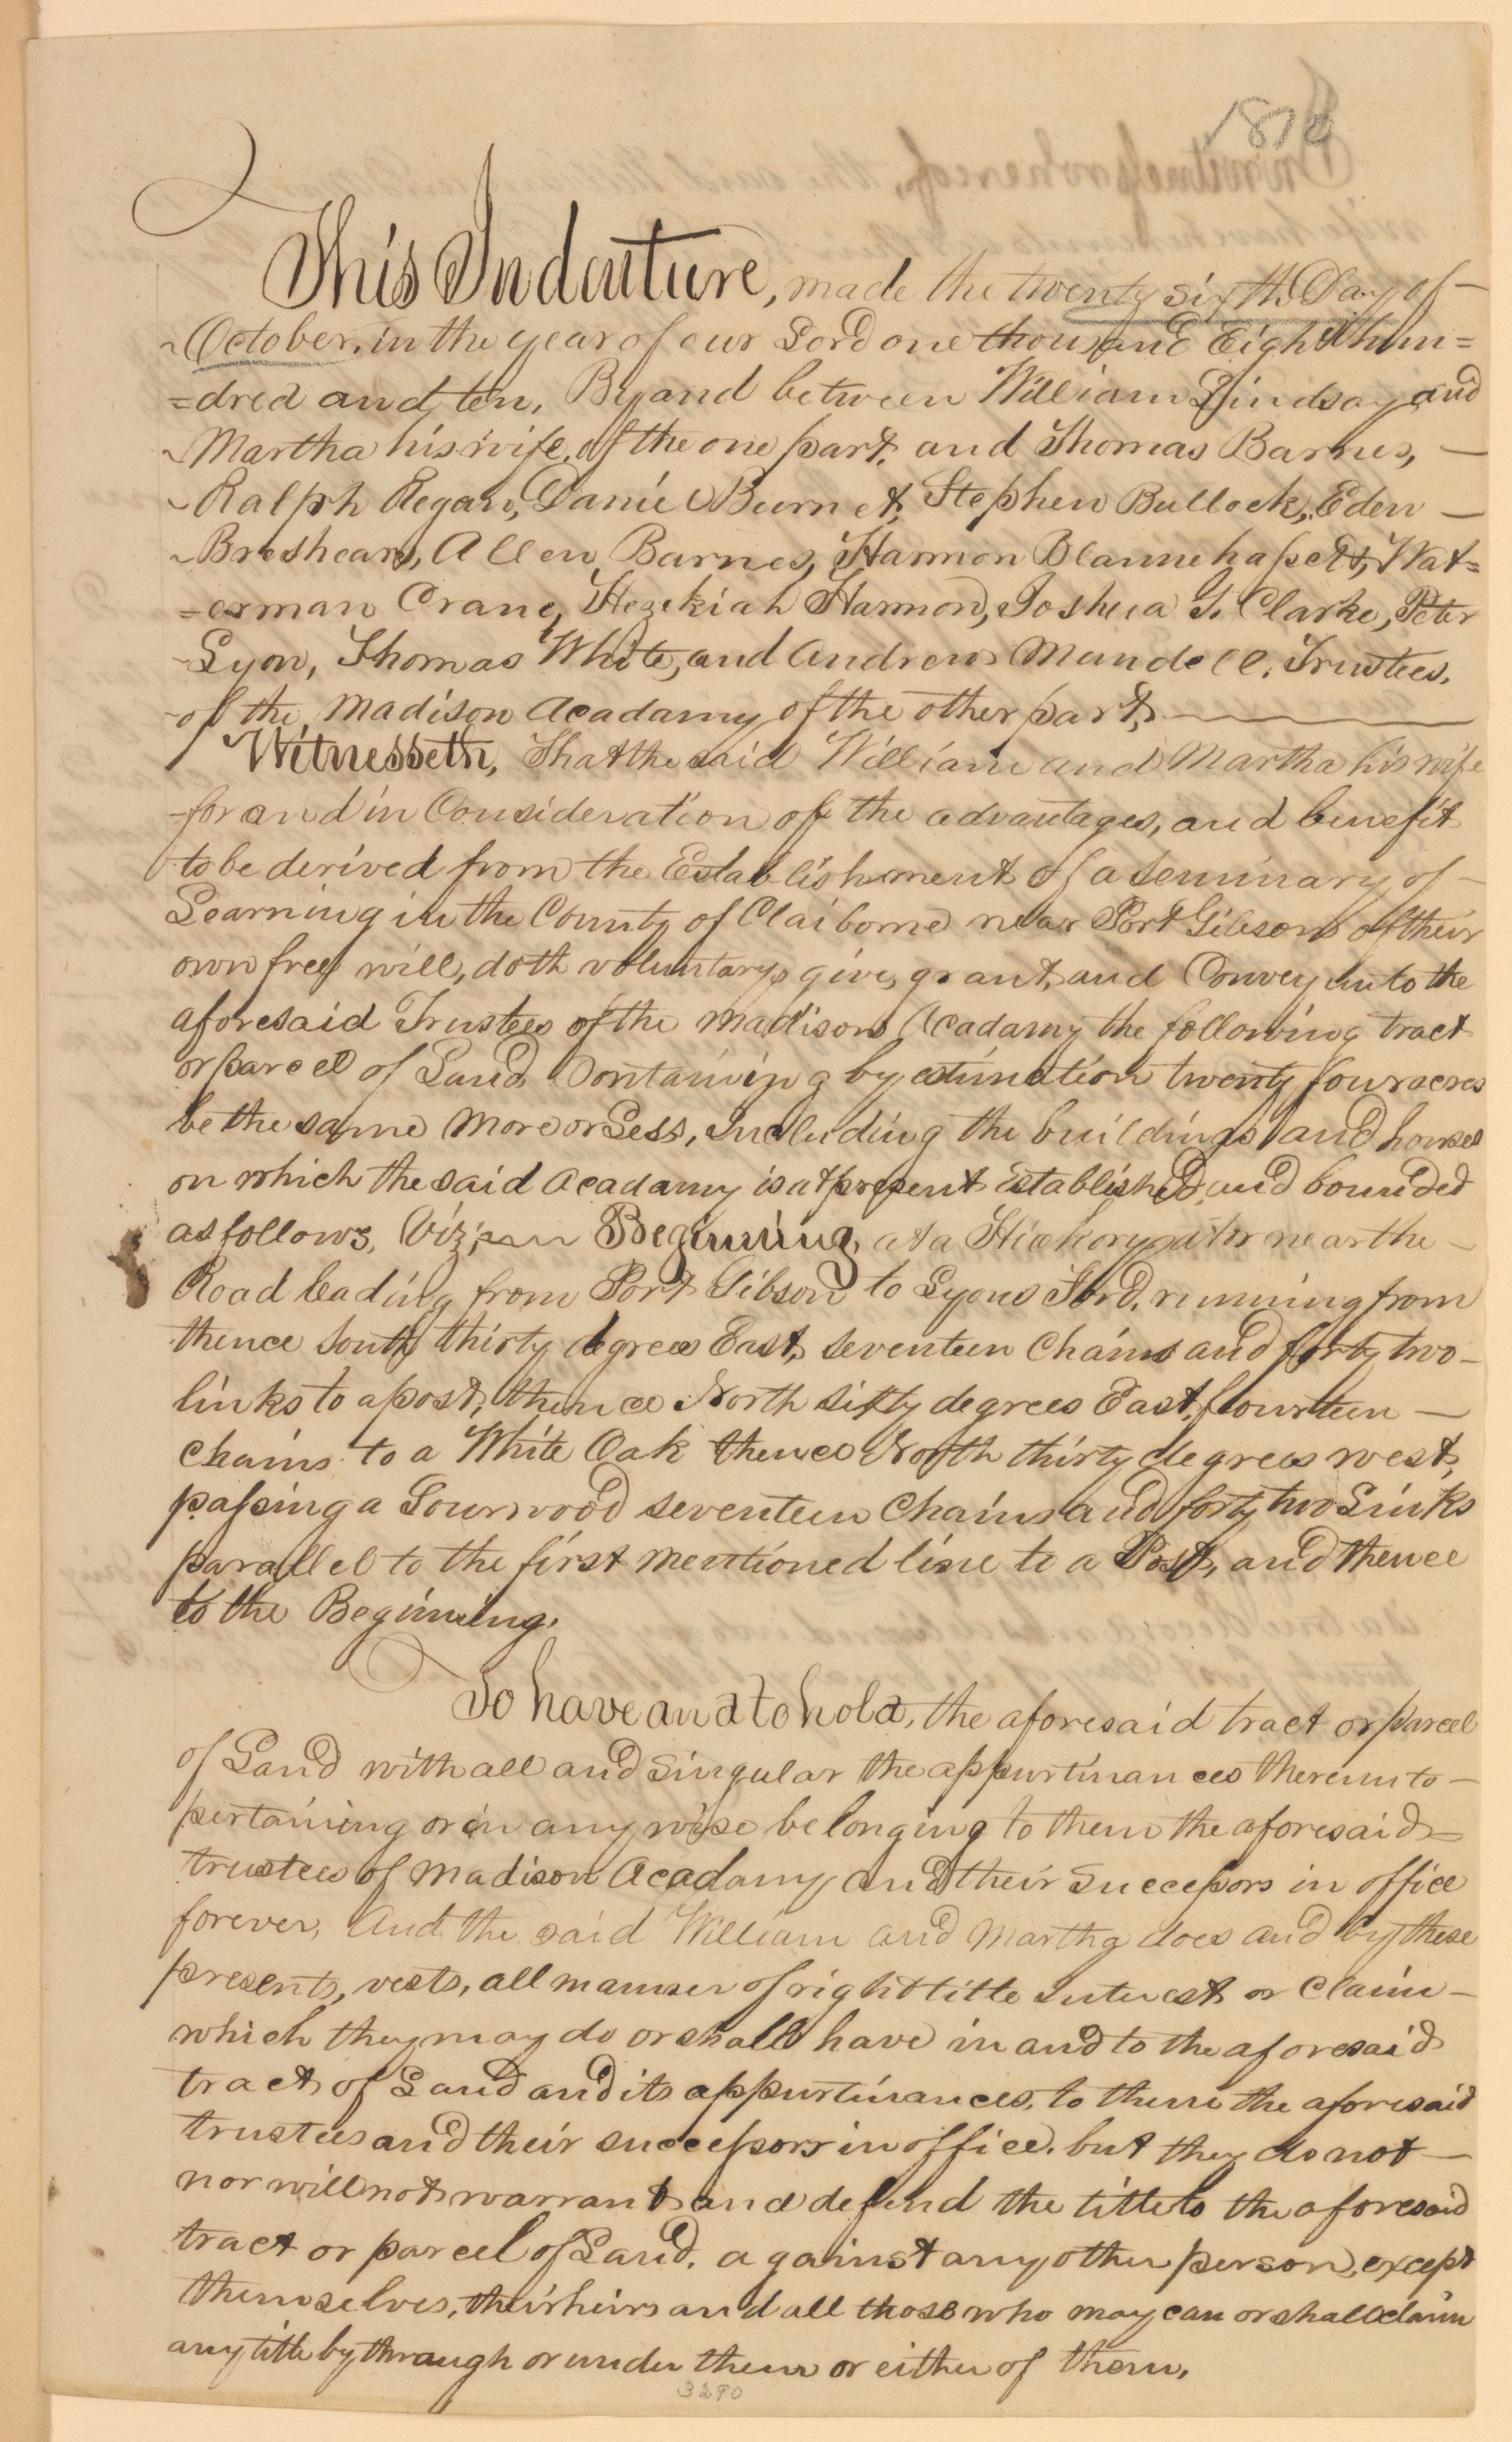 1810
This Indenture, made the twenty sixth Day of —
October, in the year of our Lord one thousand Eight hun=
=dred and ten, By and between William Lindsay and
Martha his wife, of the one part, and Thomas Barnes, —
Ralph Regan, Daniel Burnet, Stephen Bullock, Eden —
Breshears, Allen Barnes, Harmon Blannehassett, Wat=
=erman Crane, Hezekiah Harmon, Joshua G. Clarke, Peter
Lyon, Thomas White, and Andrew Mundell, Trustees,
of the Madison Acadamy of the other part, —
Witnesseth, That the said William and Martha his wife
for and in Consideration of the advantages, and benefit
to be derived from the Establishment of a Seminary of —
Learning in the County of Claiborne near Port Gibson of their
own free will, doth voluntary, give, grant, and Convey unto the
aforesaid Trustees of the Madison Acadamy the following tract
or parcel of Land Containing by estimation twenty four acres
be the same More or Less, Including the buildings and houses
on which the said Acadamy is at present Established, and bounded
as follows, Viz; Beginning, at a Hickory at or near the —
Road leading from Port Gibson to Lyons Ford, running from
thence South thirty degrees East, seventeen Chains and forty two —
links to a post, thence North sixty degrees East, fourteen —
Chains to a White Oak thence North thirty degrees west,
passing a Sourwood seventeen Chains and forty two Links
parallel to the first mentioned line to a Post, and thence
to the Beginning.
To have and to hold, the aforesaid tract or parcel
of Land with all and singular the appurtinances thereunto —
pertaining or in any wise belonging to them the aforesaid =
trustees of Madison Acadamy and their Successors in office
forever, And the said William and Martha does and by these
presents, vests, all manner of right title Interest or Claim —
which they may do or shall have in and to the aforesaid
tract of Land and its appurtinances, to them the aforesaid
trustees and their successors in office, but they do not —
nor will not warrant and defend the title to the aforesaid
tract or parcel of Land, against any other person, except
themselves, their heirs and all those who may can or shall claim
any title by through or under them or either of them.
3290